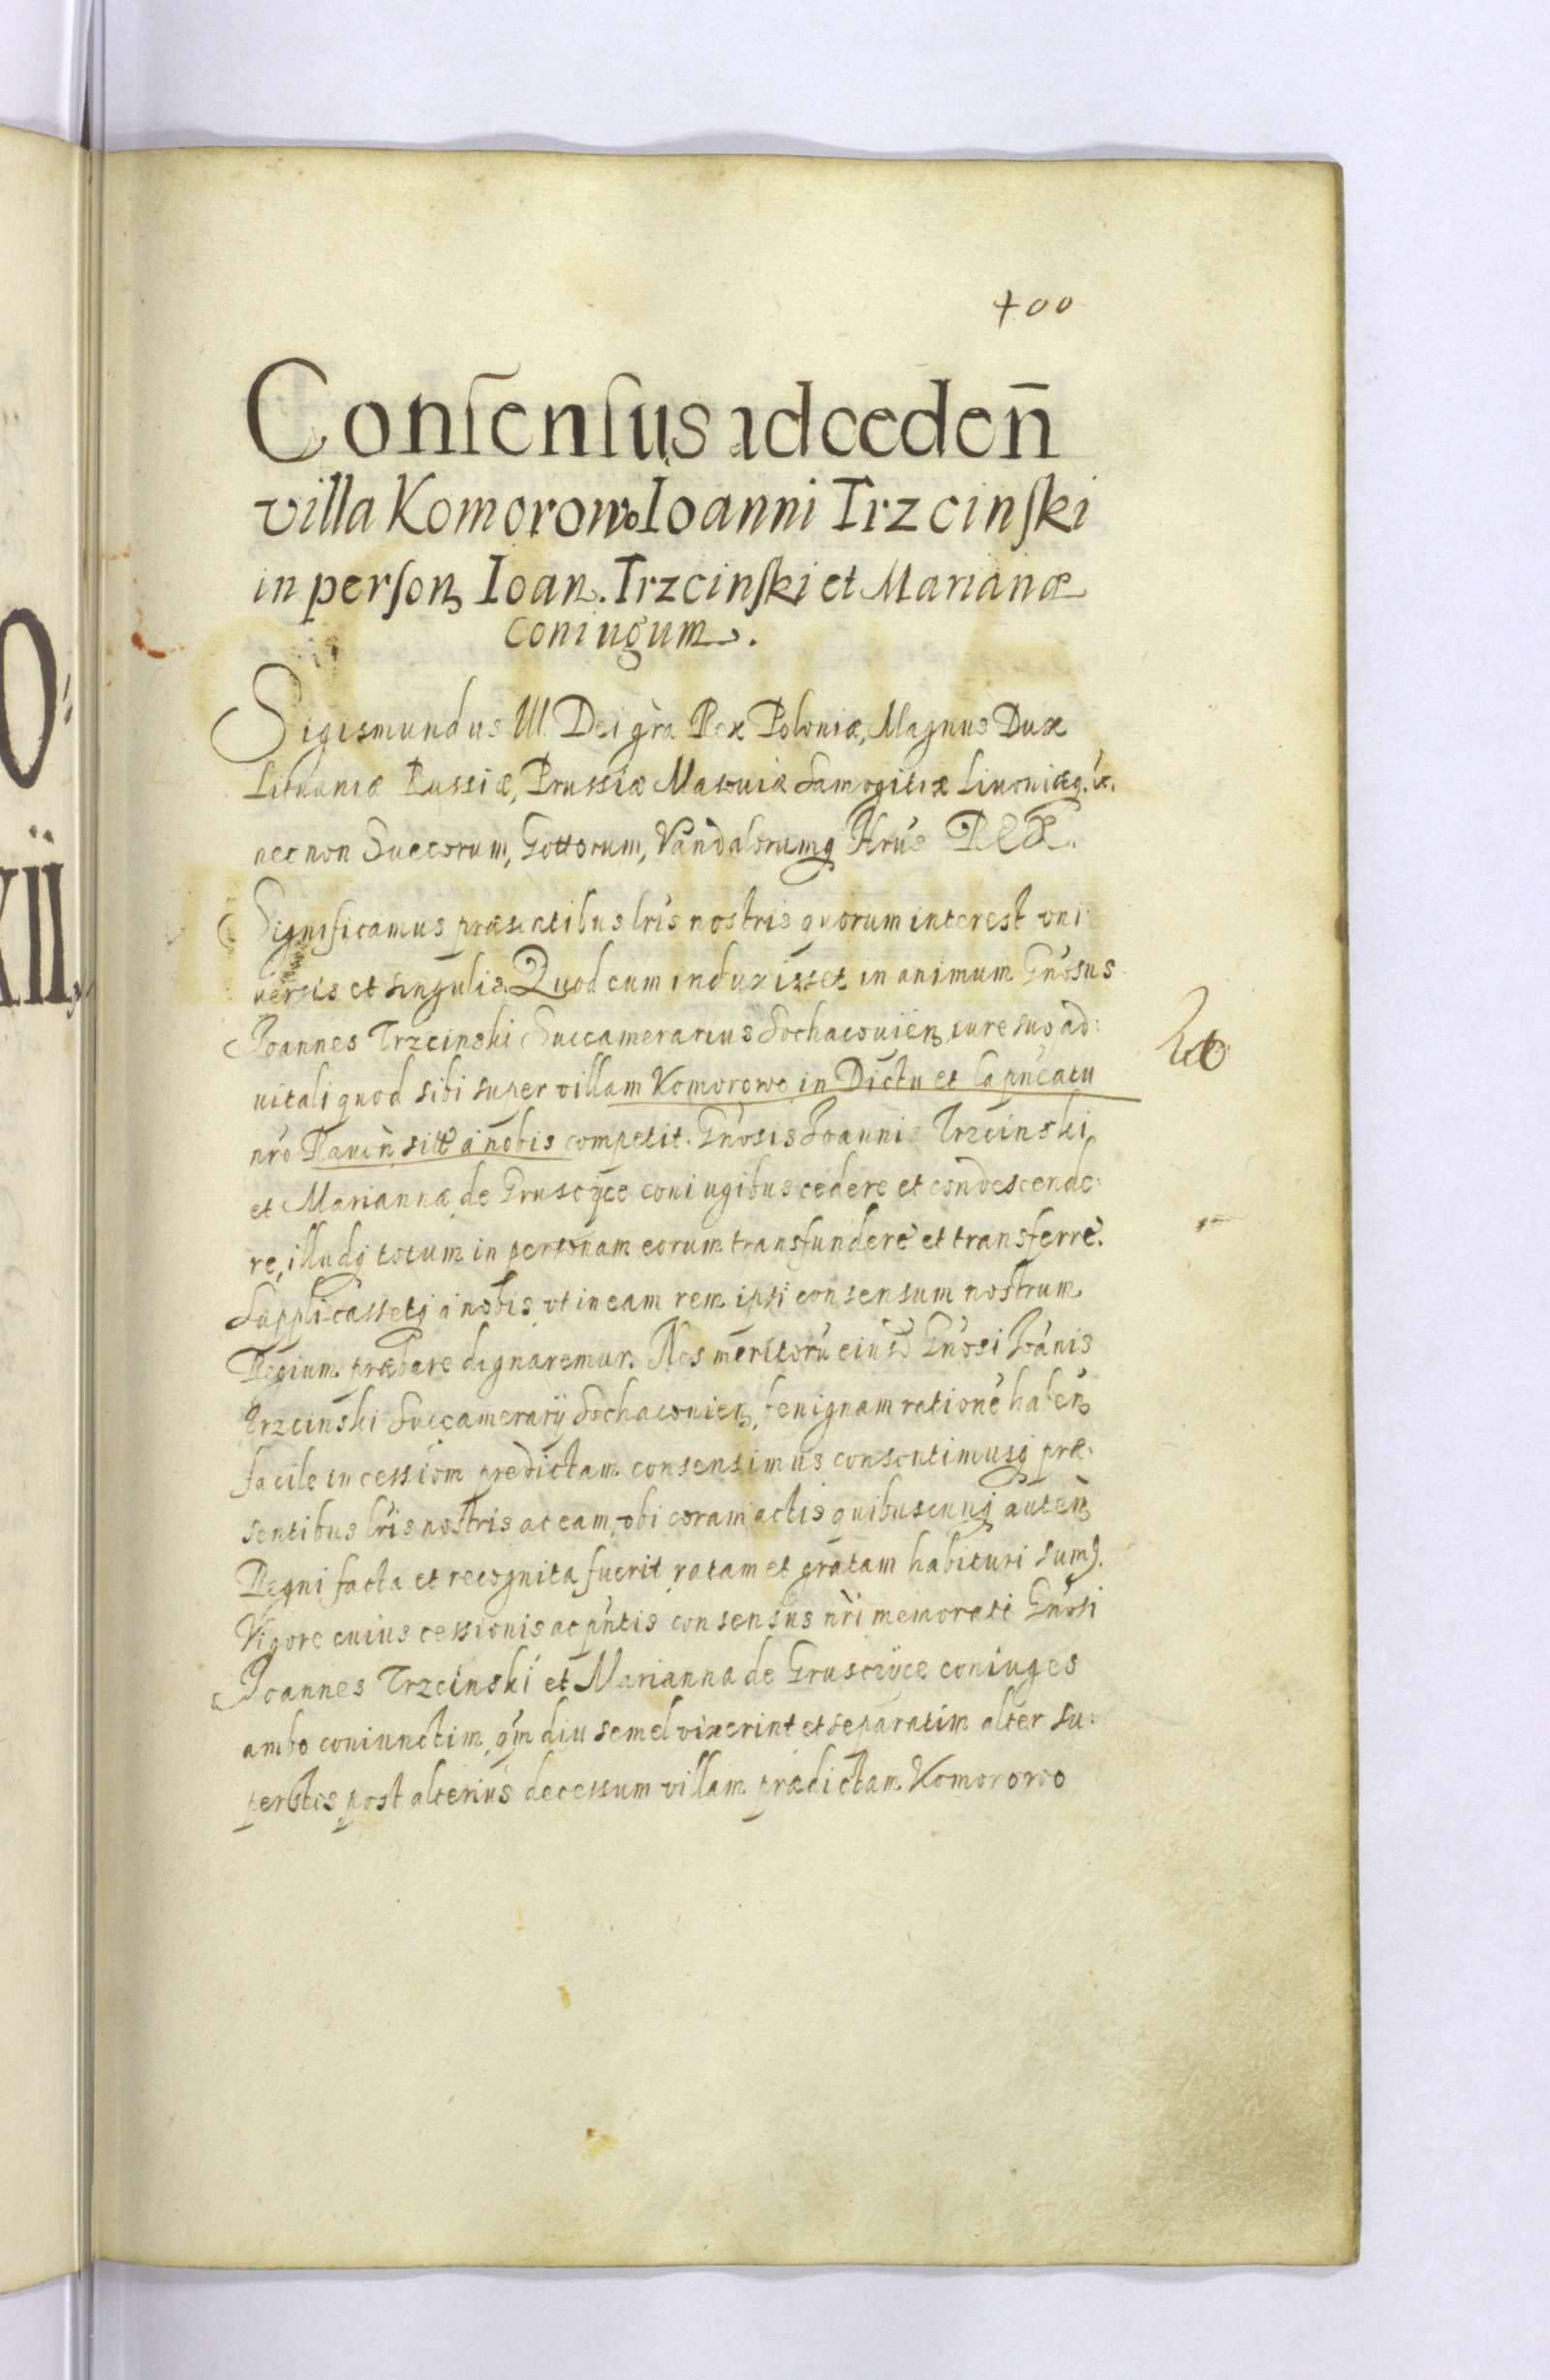 400
Consensus ad ceden̄
villa Komorowo Ioanni Trzcinski
in person Ioan. Trzcinski et Marianæ
coniugum.
Sigismundus III Dei gr̀a Rex Poloniæ, Magnus Dux
Lituaniæ Russiæ, Prussiæ Masouiæ Samogitiæ Liuoniæq,
nec non Suecorum, Gottorum, Vandalorumq Hrús REX.
Significamus præsentibus lrīs nostris quorum interest vni
uersis et singulis. Quod cum induxisset in animum Gnósus
Joannes Trzcinski Succamerarius Sochaczouień iure suo ad:
uitali quod sibi super villam Komorowo in Dictu et Capnéatu
nró Rauen̄ sitã a nobis competit. Gnósis Joannis Trzcinski
et Mariannæ de Gruscÿce coniugibus cedere et condescende:
re, illudq totum in personam eorum transfundere et transferre.
Supplicassetq a nobis vt in eam rem ipsi consensum nostrum
Regium præbere dignaremur. Nos meritorū eiusd Gnósi Joánis
Trzcinski Succamerarÿ Sochaczouien, benignam rationē haben̄
facile in cessiom predictam consensimus consentimusq præ:
sentibus lrīs nostris ac eam, vbi coram actis quibuscunq auten̄
Regni facta et recognita fuerit ratam et gratam habituri sum9.
Vigore cuius cessionis ac pn̄tis consensus nr̀i memorati Gnósi
Joannes Trzcinski et Marianna de Grusczÿce coniuges
ambo coniunctim qm diu semel vixerint et separatim alter su:
perstes post alterius decessum villam prædictam Komorowo